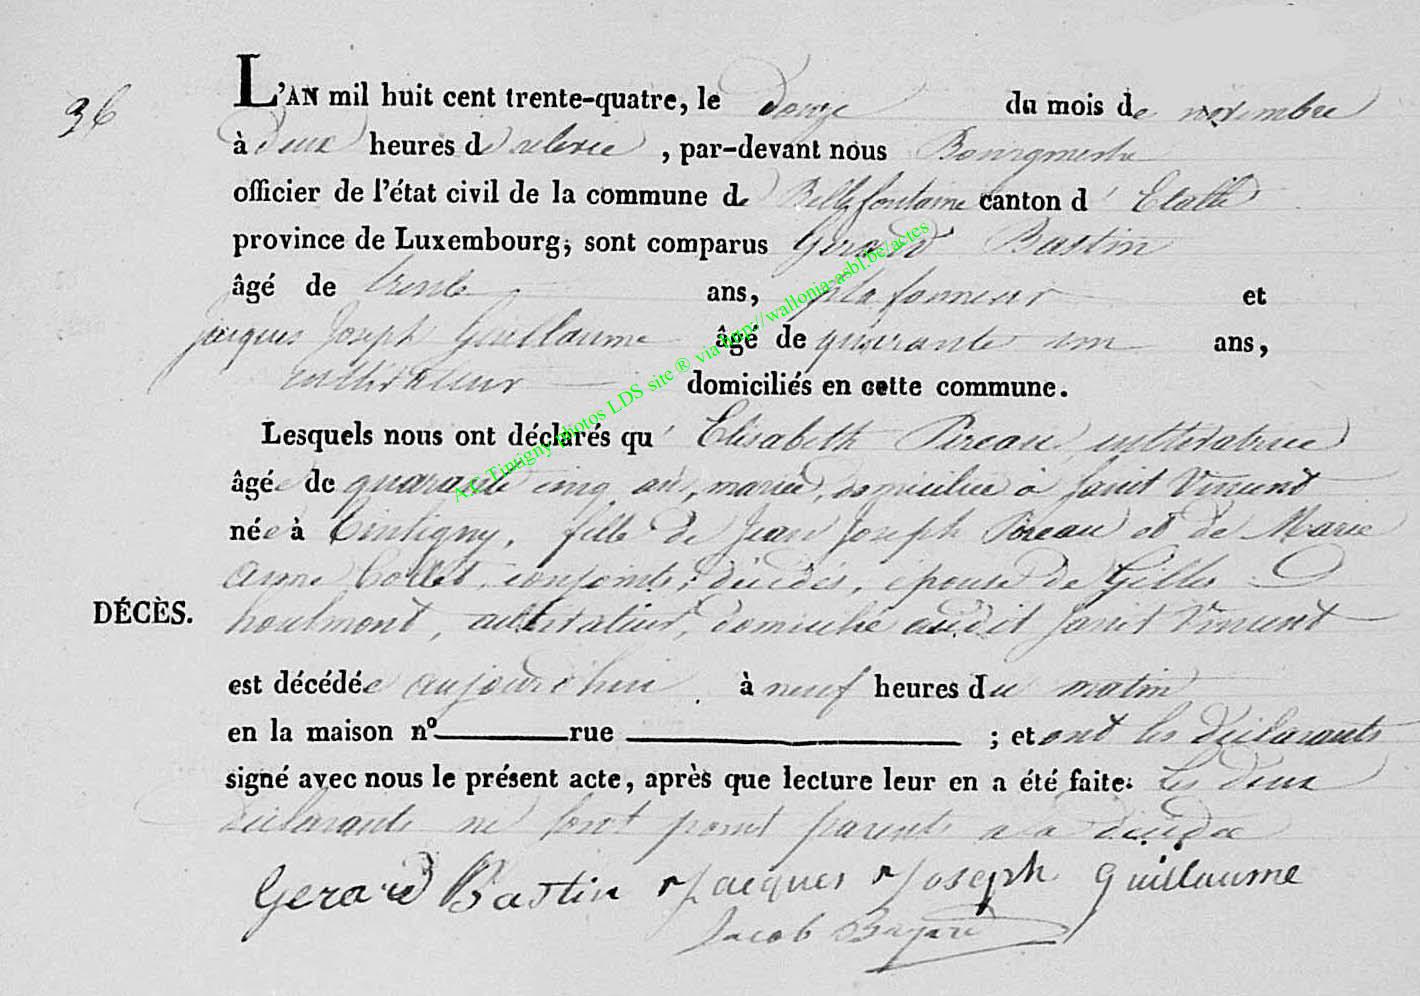 36
L'AN mil huit cent trente-quatre, le douze du mois de novembre
à deux heures de relevée, par-devant nous Bourgmestre
officier de l'état civil de la commune de Bellefontaine canton d'Etalle
province de Luxembourg, sont comparus Gérard Bastin
âgé de trente ans, plafonneur et
jacques Joseph Guillaume âgé de quarante un ans,
cultivateur domiciliés en cette commune.
Lesquels nous ont déclarés qu'Elisabeth Pireau cultivatrice
âgée de quarante cinq ans, mariée, domiciliée à Saint Vincent
née à Tintigny, fille de Jean Joseph Pireau et de Marie
Anne Collet, conjoints, décédés, épouse de Gilles
houlmont, cultivateur, domicilié audit Saint Vincent
DÉCÈS.
est décédée aujourd'hui à neuf heures du matin
en la maison n° rue ; et ont les déclarants
signé avec nous le présent acte, après que lecture leur en a été faite. Les deux
déclarants ne sont point parents a la décédée
Gerard Bastin Jacques Joseph Guillaume
Jacob Bajard
A.E. Tintigny photos LDS site ® via http://wallonia-asbl.be/actes